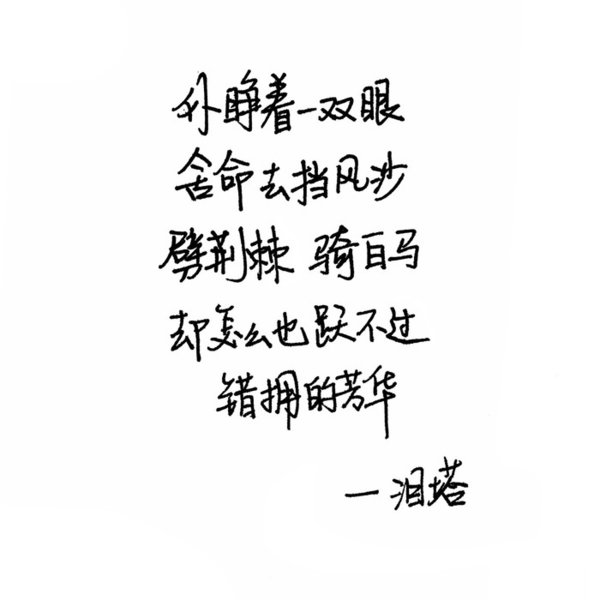 外睁着一双眼
舍命去挡风沙
劈荆棘 骑白马
却怎么也跃不过
错拥的芳华
一泪塔